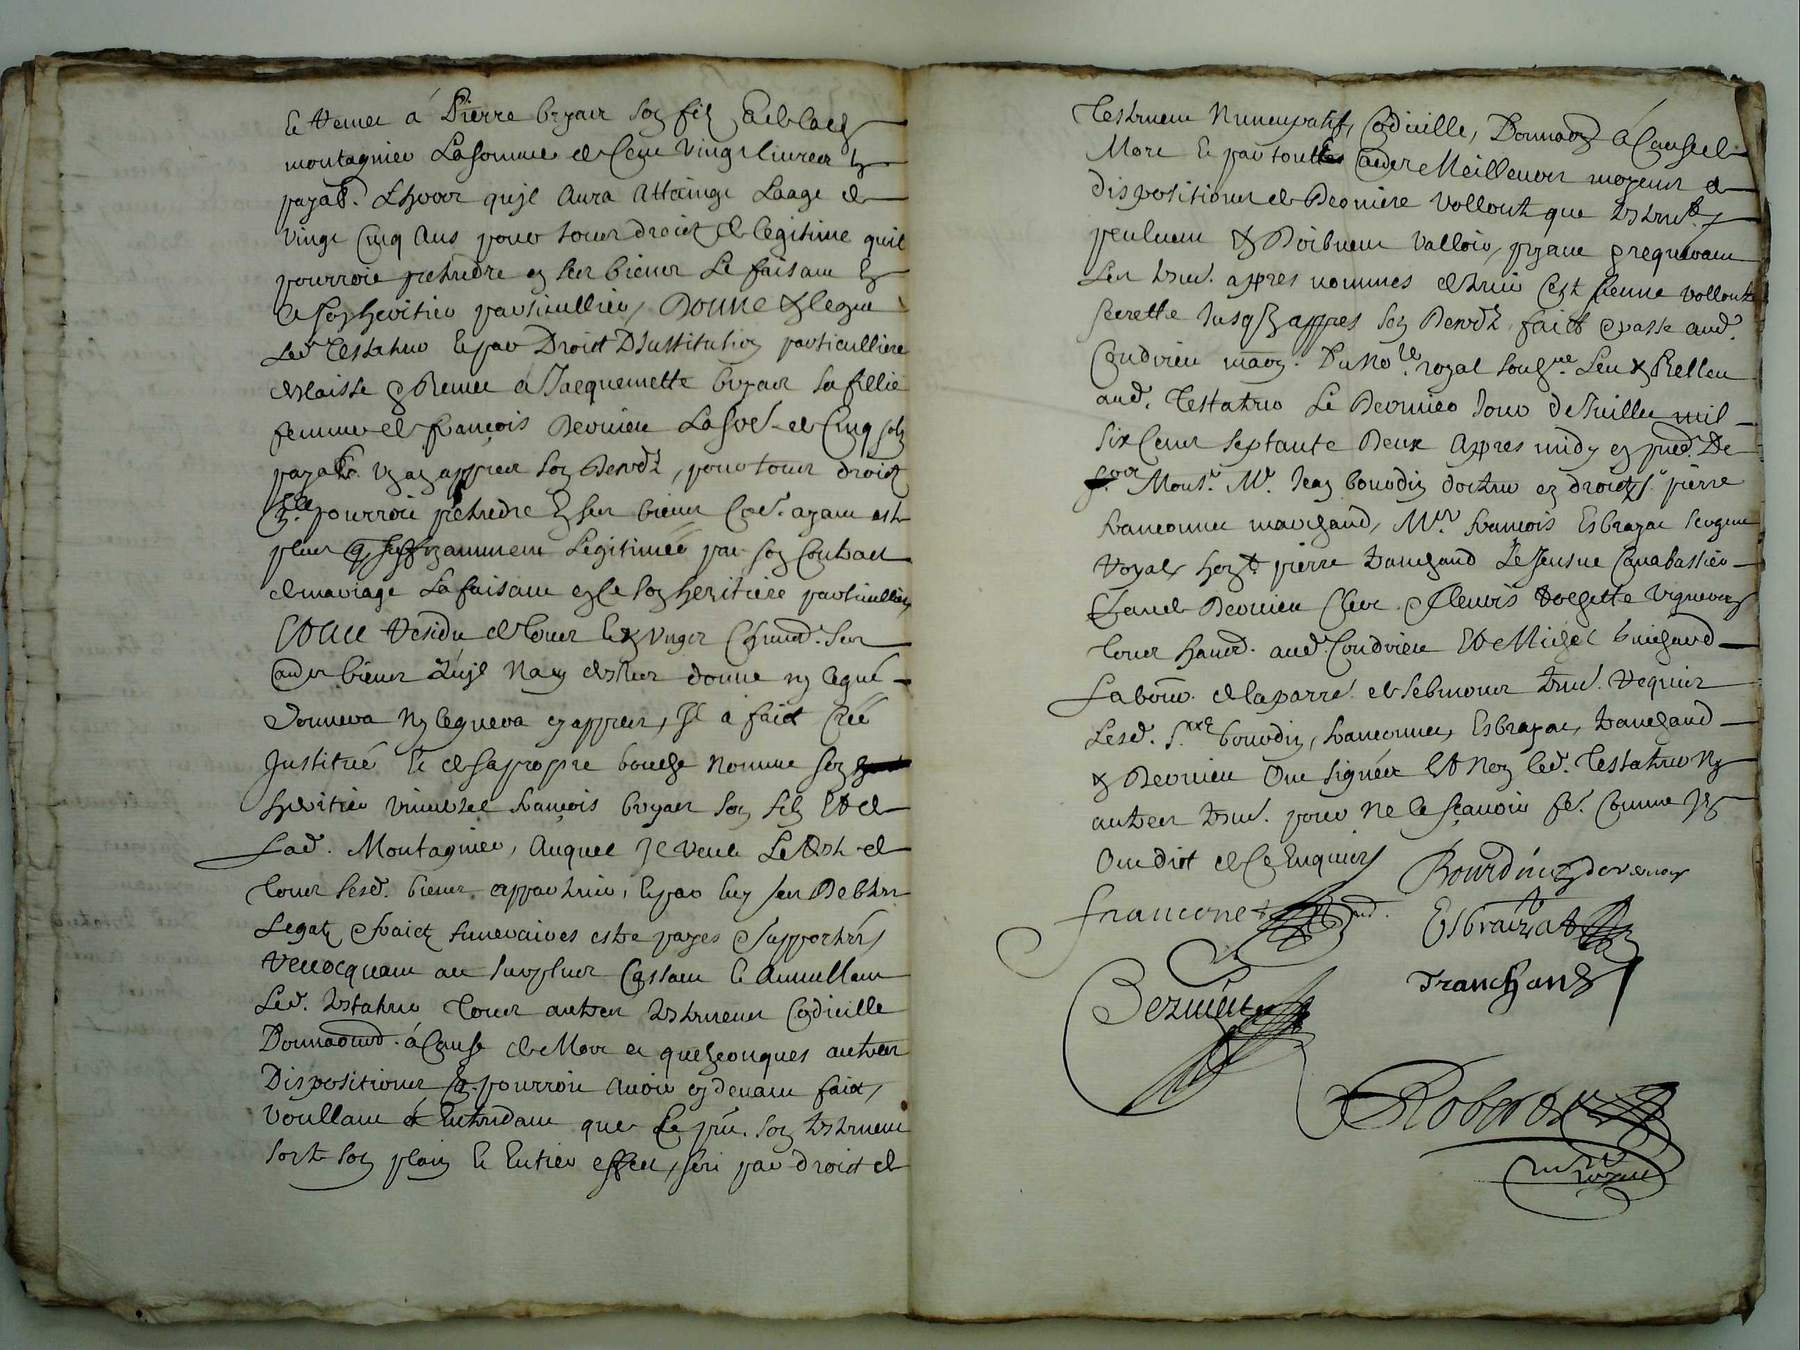 et remet á Pierre bryair son filz et de lad.
montagnier La somme de Cent Vingt livres
payab. Lhors quil Aura Attaingt Laage de
Vingt Cinq Ans pour tous droictz de legitime quil
pourroit prethendre en ses biens Le faisant en
ce son heritier particullier, Donne & legue
Led. Testateur et par Droict D'Institution particulliere
delaisse & Remet á Jacquemette bryair sa fillie
femme de françois Bernieu La so. de Cinq solz
payab. un an apprez son Decedz, pour tous droictz
qelle pourroit prethendre en ses biens ayant esté
plus que suffizamment Legitimée par son Contract
de mariage La faisant en ce son heritiere particulliere
Et Au Residu de tous et Ungz Chacuns Ses
aues biens desquelz Na cy dessus donné ny legué
Donnera Ny leguera cy apprez, Il a faict Créé
Institué Et de sa propre bouche Nommé son
heritier Universel françois bryair son filz Et de
Lad. Montagnier, Auquel Il Veult Led. de
tous sesd. biens appartenir, et par luy ses Debtes
Legatz & fraictz funeraires estre payés & supportés
Revocquant au surplus Cassant et Annullant
Led. testateur tous autres testamens Codicille
Donnaons. á Cause de Mort et quelzconques autres
Dispositions quil pourroit Avoir cy devant faict,
Voullant & Entendant que le pnt. son testament
sorte son plain et Entier effect, soit par droict de
Testament Nuncupatif, Codicille, Donnaon á Cause de
Mort et par toutes autres Meilleures moyens &
dispositions de Derniere Vollonté que testamt.
peuvent & Doibvent Valloir, pryant & requerant
Les tesm. appres nommés de tenir Ceste sienne vollonté
secrette Jusques appres son Decedz, faict & passé aud.
Condrieu maon. Du No.re royal soub.né Leu & Relleu
aud. Testateur Le Dernier Jour de Juillet mil
six Cens septante Deux Appres midy en pnce. De
Mons.r M.r Jean bourdin docteur en droictz s.r pierre
francomet marchand, M.re francois Esbrayat sergent
royal, hon. pierre tranchand Le Jeusne Cabarettier
Claude Bernieu Clerc & Cleuvis Vogette Vigneron
tous habit. aud. Condrieu Et Michel buichard
Labour. de la parre. de Sebmons tesm. requis
Lesd. s.rs bourdin, francomet, Esbrayat, tranchand
& Bernieu Ont signéz Et Non led. Testateur Ny
autres tesm. pour Ne le sçavoir fe. Comme Ilz
Ont dict de ce Enquis
Bourdin
franconet
Esbraiat
Tranchand
Bernieu
Robert
No.re royal